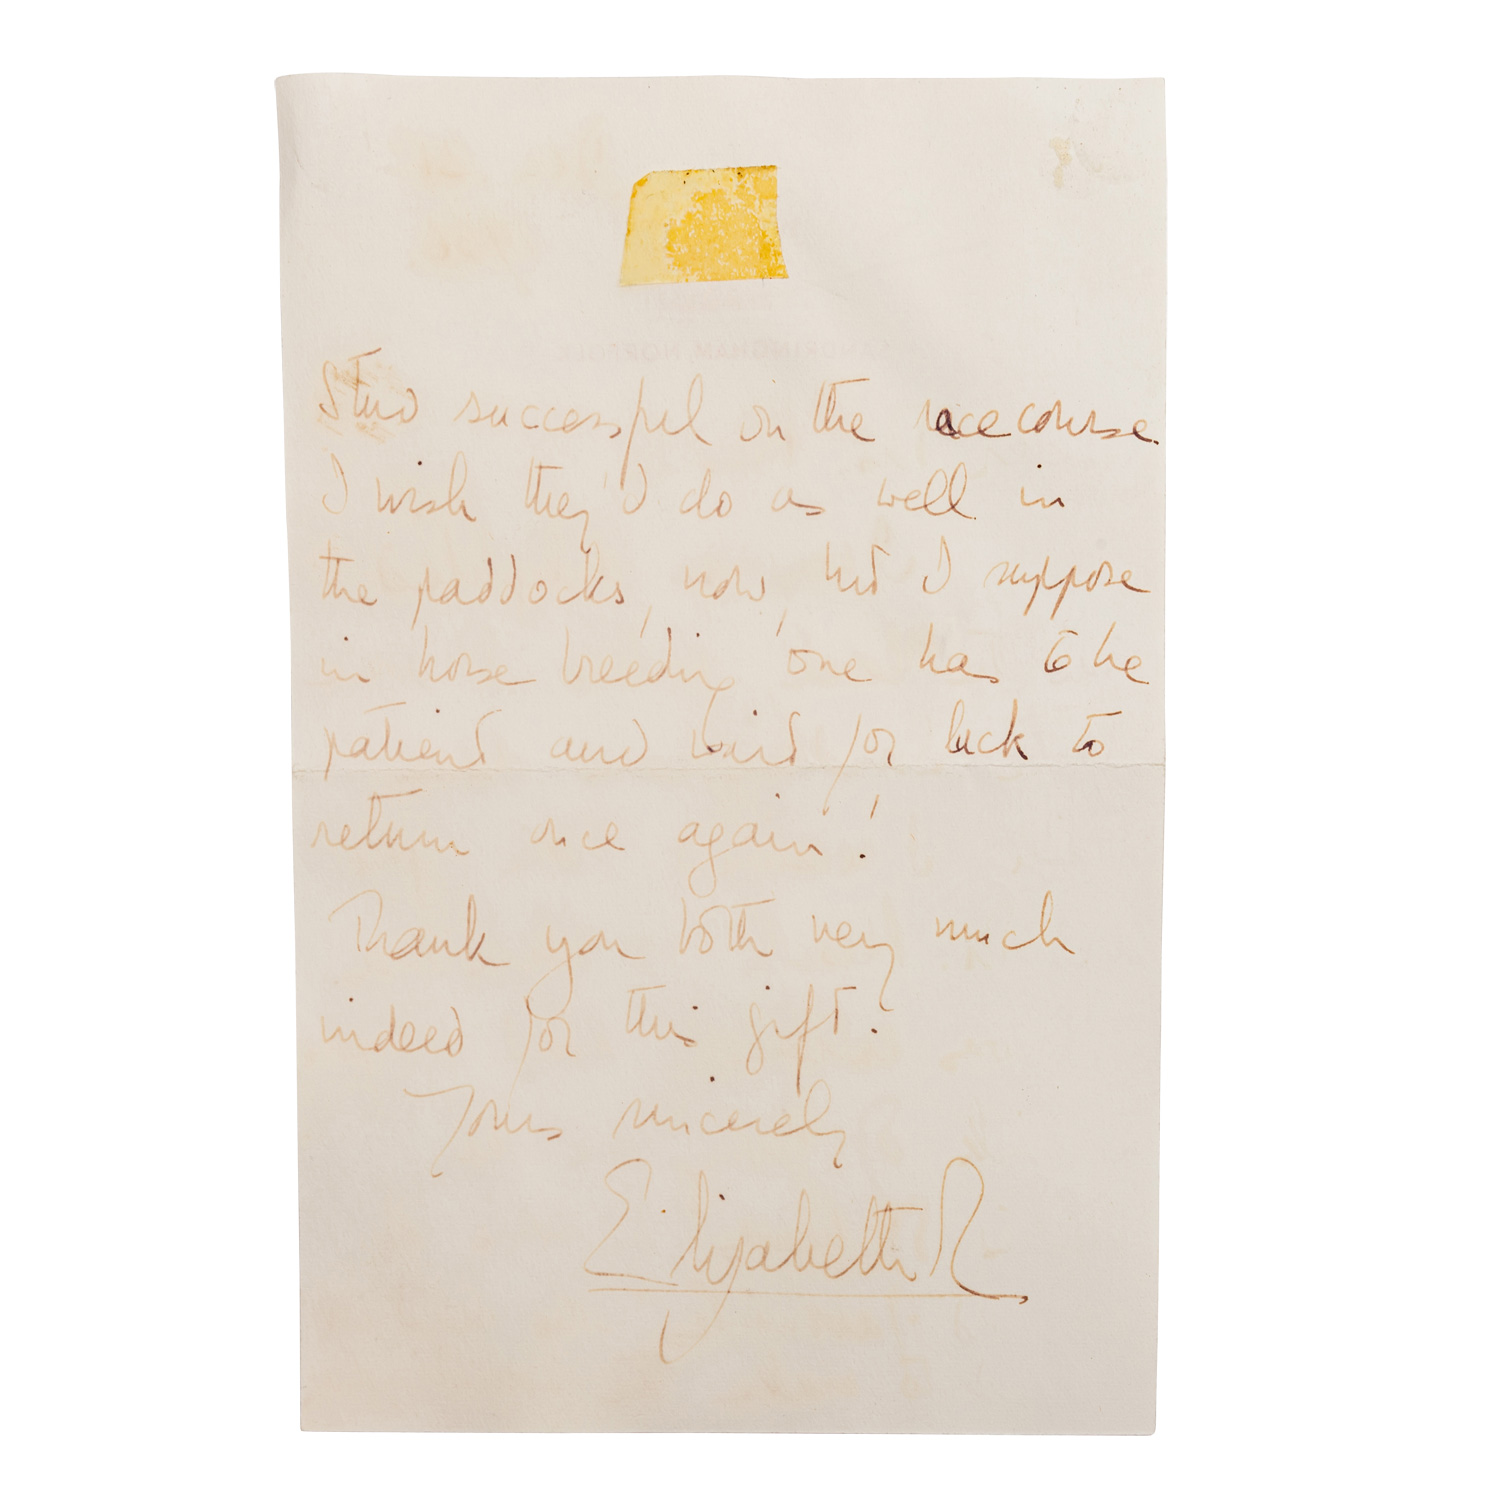 SANDRINGHAM, NORFOLK
Stud successful on the racecourse.
I wish they'd do as well in
the paddocks, now, but I suppose
in horse breeding one has to be
patient and wait for luck to
return once again!
Thank you both very much
indeed for this gift.
Yours sincerely
Elizabeth R